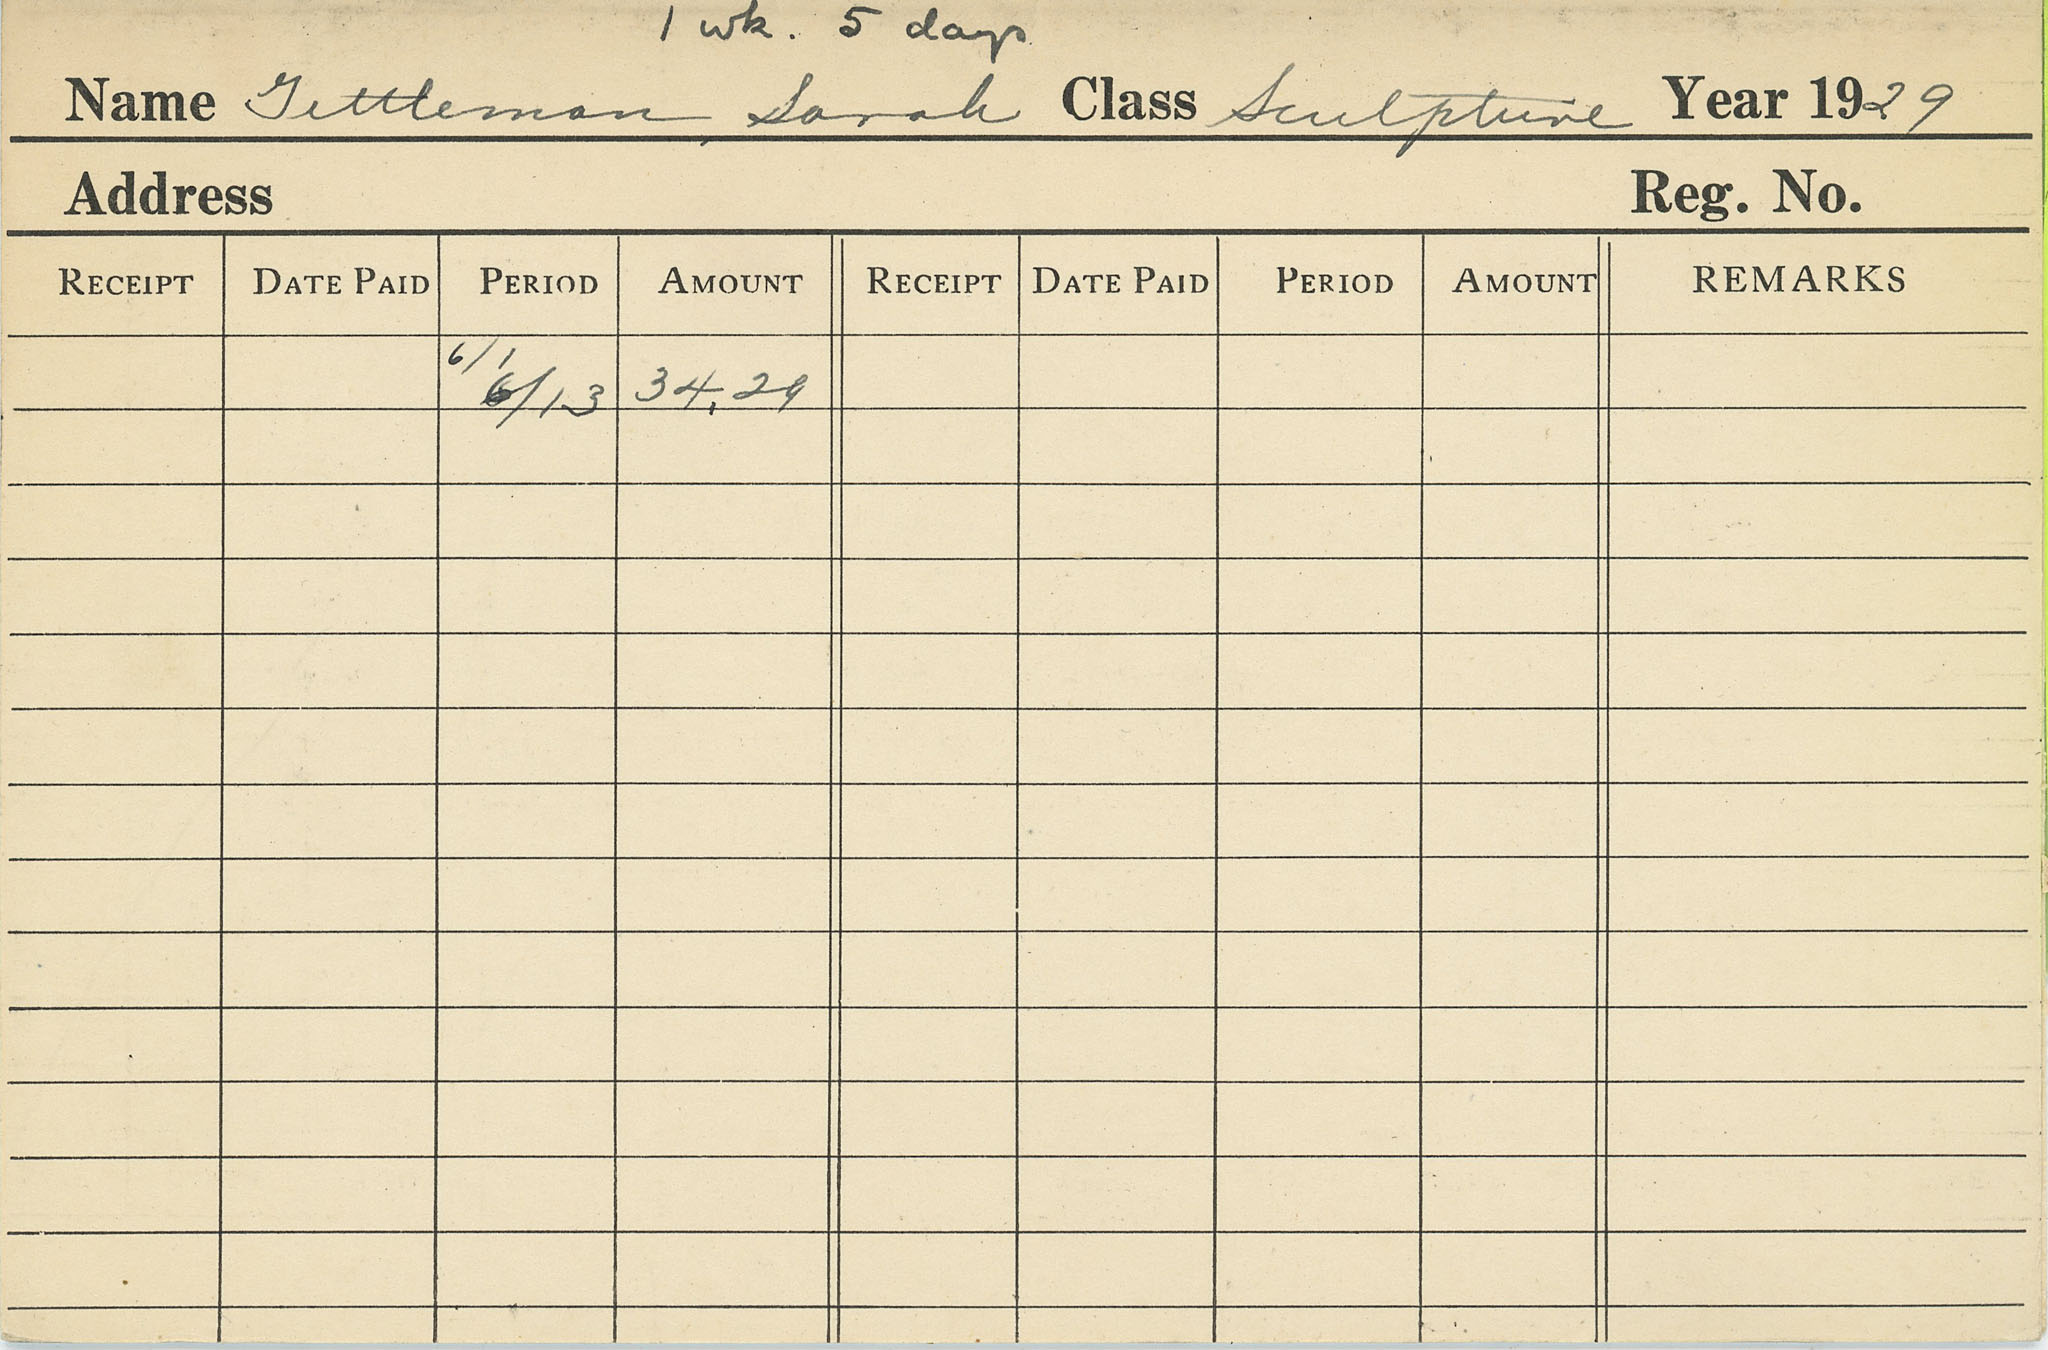 1 wk. 5 days
Name Gettleman, Sarah Class Sculpture Year 1929
Address Reg. No.
RECEIPT DATE PAID PERIOD AMOUNT RECEIPT DATE PAID PERIOD AMOUNT REMARKS
6/1
6/13 34.29